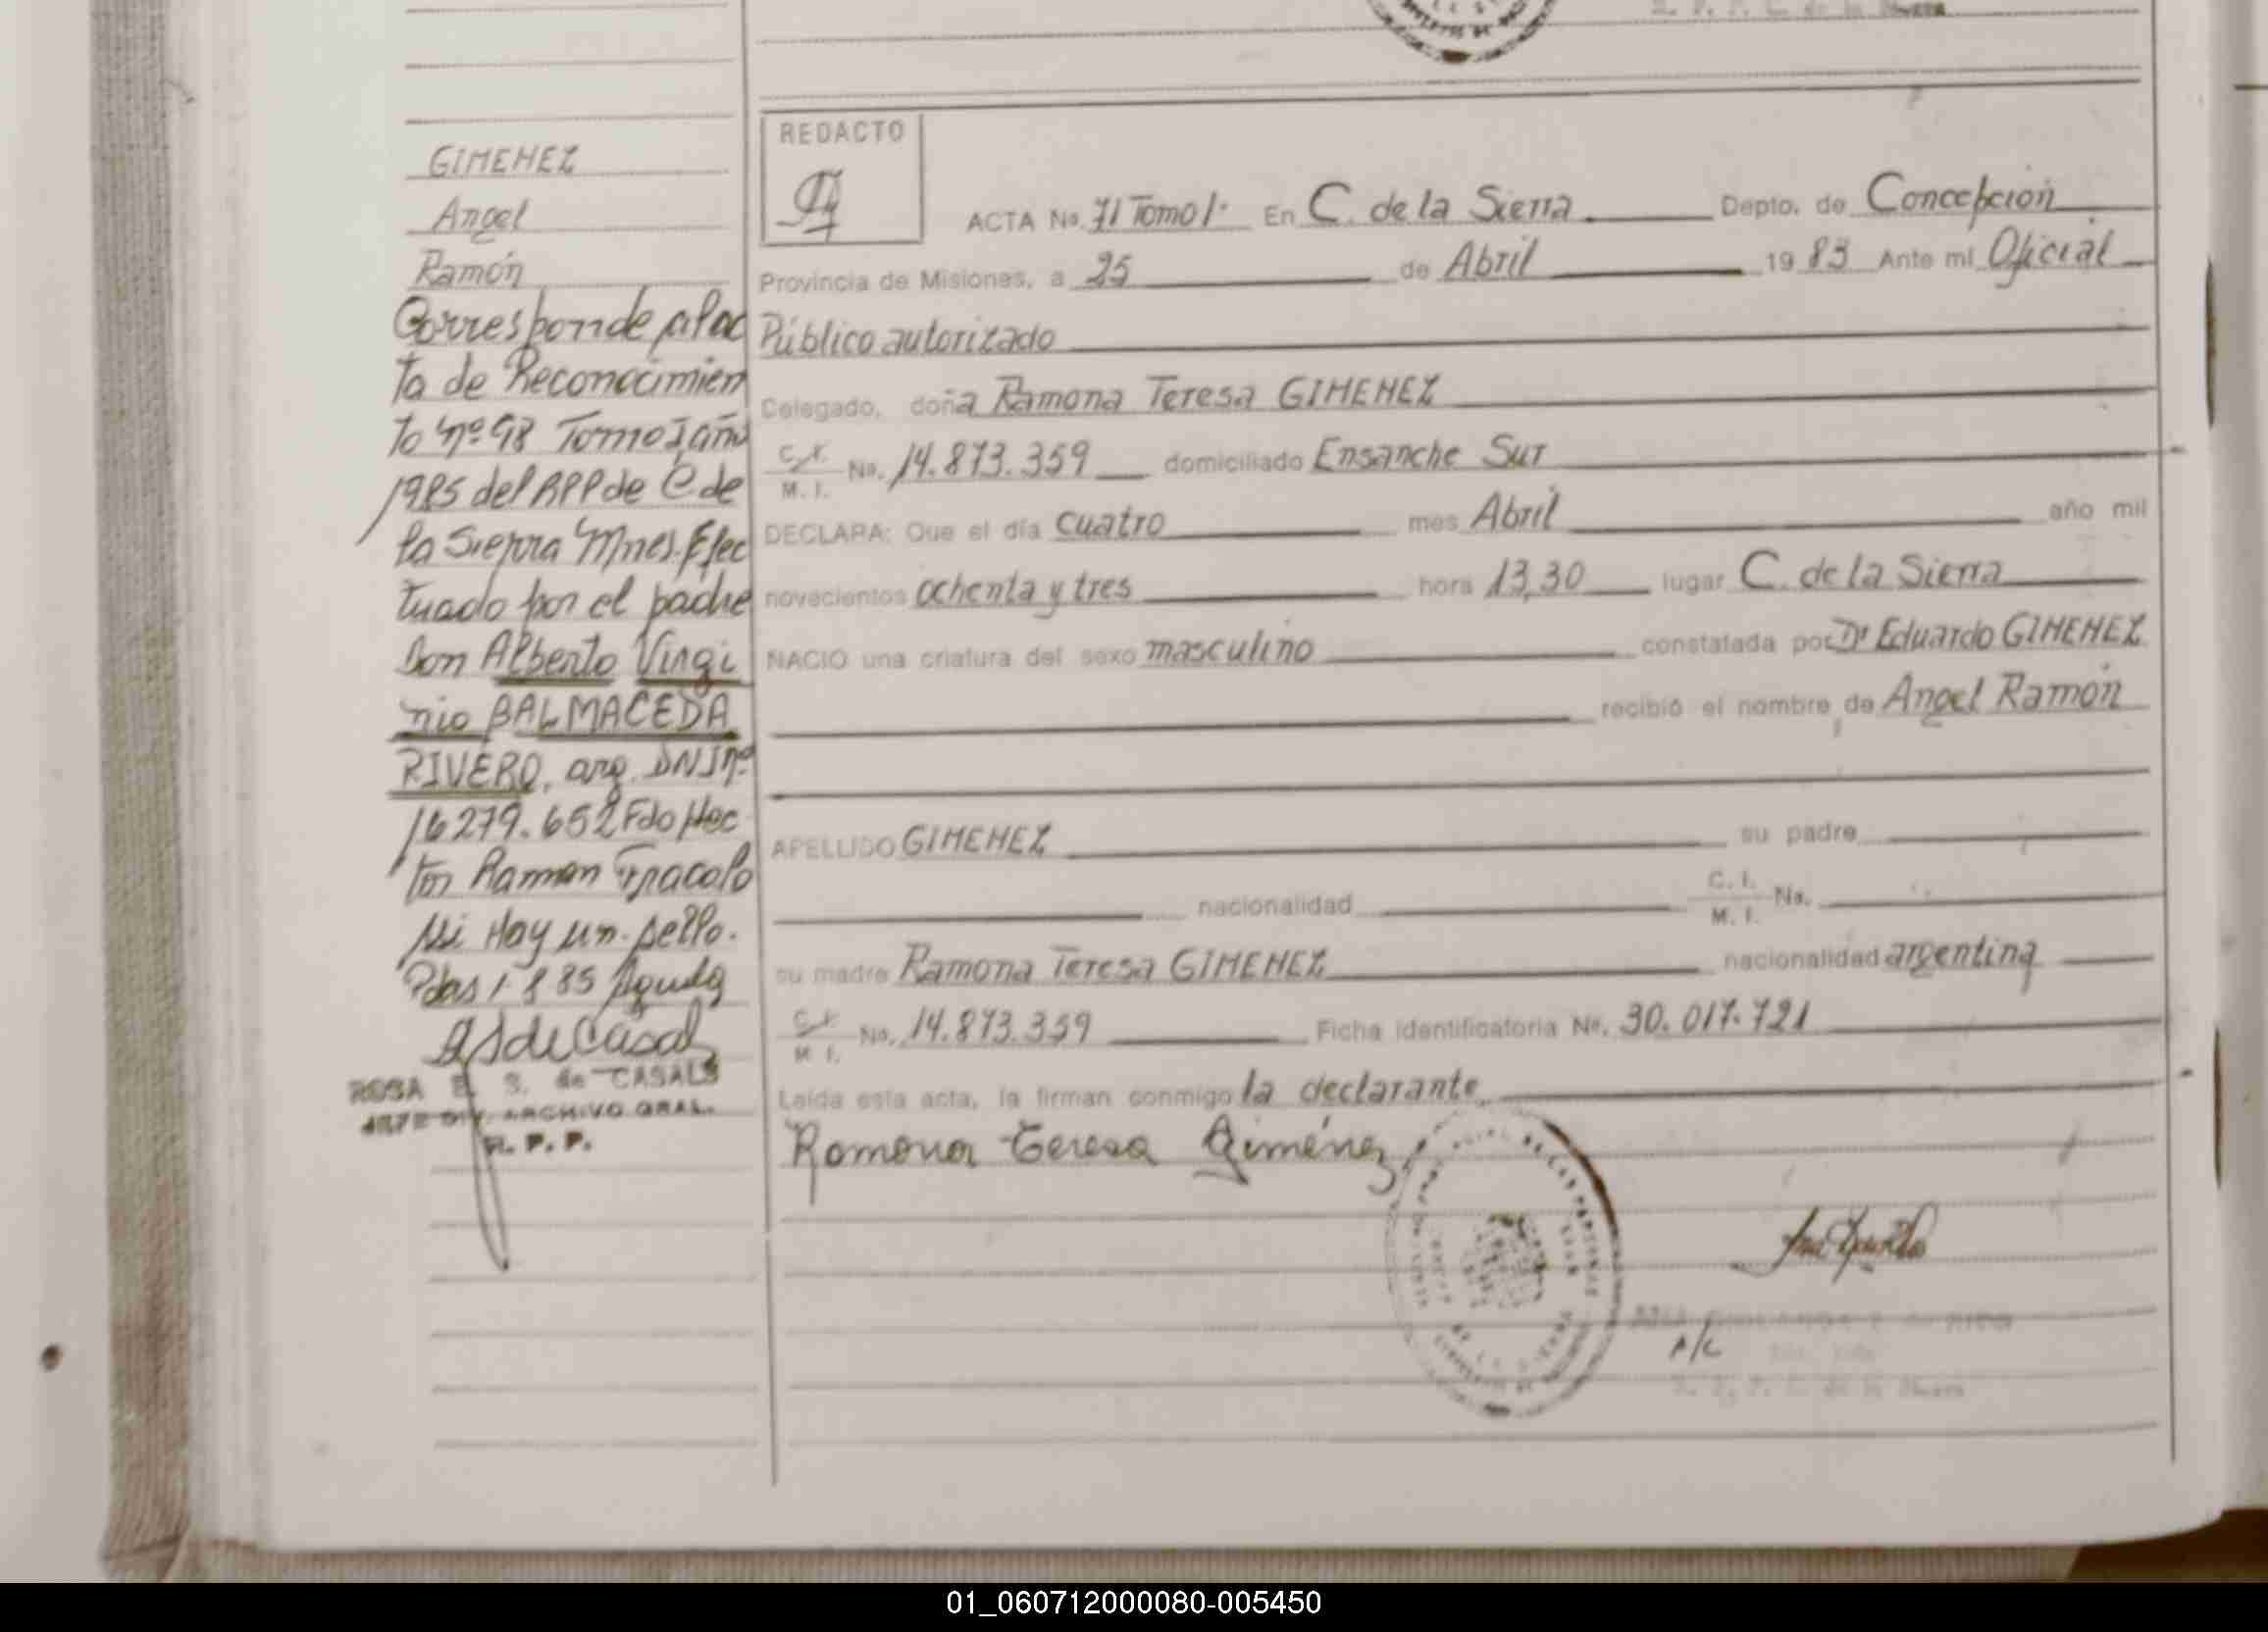 GIMENEZ
Angel
Ramón
Corresponde al ac
ta de Reconocimien
to nº 98 Tomo I año
1985 del RPP de C de
la Sierra Mnes. Efec
tuado por el padre
Don Alberto Virgi
nio BALMACEDA
RIVERO, arg. DNI nº
16279.652 Fdo Hec
tor Ramon
Hay un sello.
Pdas 1 8 85
ROSA E. S. de CASALS
JEFE DIV. ARCHIVO GRAL.
R. P. P.
REDACTO
ACTA No. 71 Tomo I· En C. de la Sierra. Depto. de Concepción
Provincia de Misiones, a 25 de Abril 1983 Ante mi Oficial
Público autorizado
Delegado, doña Ramona Teresa GIMENEZ
C.I. M. I. No. 14.873.359 domiciliado Ensanche Sur
DECLARA: Que el día cuatro mes Abril año mil
novecientos ochenta y tres hora 13,30 lugar C. de la Sierra
NACIO una criatura del sexo masculino constatada por Dr Eduardo GIMENEZ
recibió el nombre de Angel Ramón
APELLIDO GIMENEZ su padre
nacionalidad C. I. M. I. No.
su madre Ramona Teresa GIMENEZ nacionalidad argentina
C.I. M. I. No. 14.873.359 Ficha identificatoria No. 30.017.721
Leída esta acta, la firman conmigo la declarante
Ramona Teresa Giménez
A/C
01_060712000080-005450